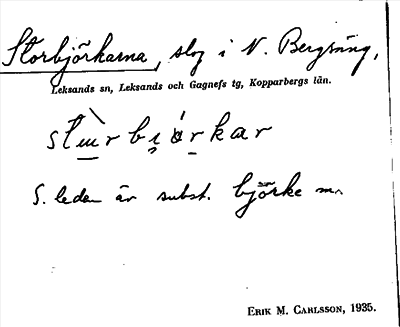 Storbjörkarna, slog i N. Bergsäng,
Leksands sn, Leksands och Gagnefs tg, Kopparbergs län.
stɯ̲̀rbi̭ór̲kar
S. leden är subst. björke m.
ERIK M. CARLSSON, 1935.